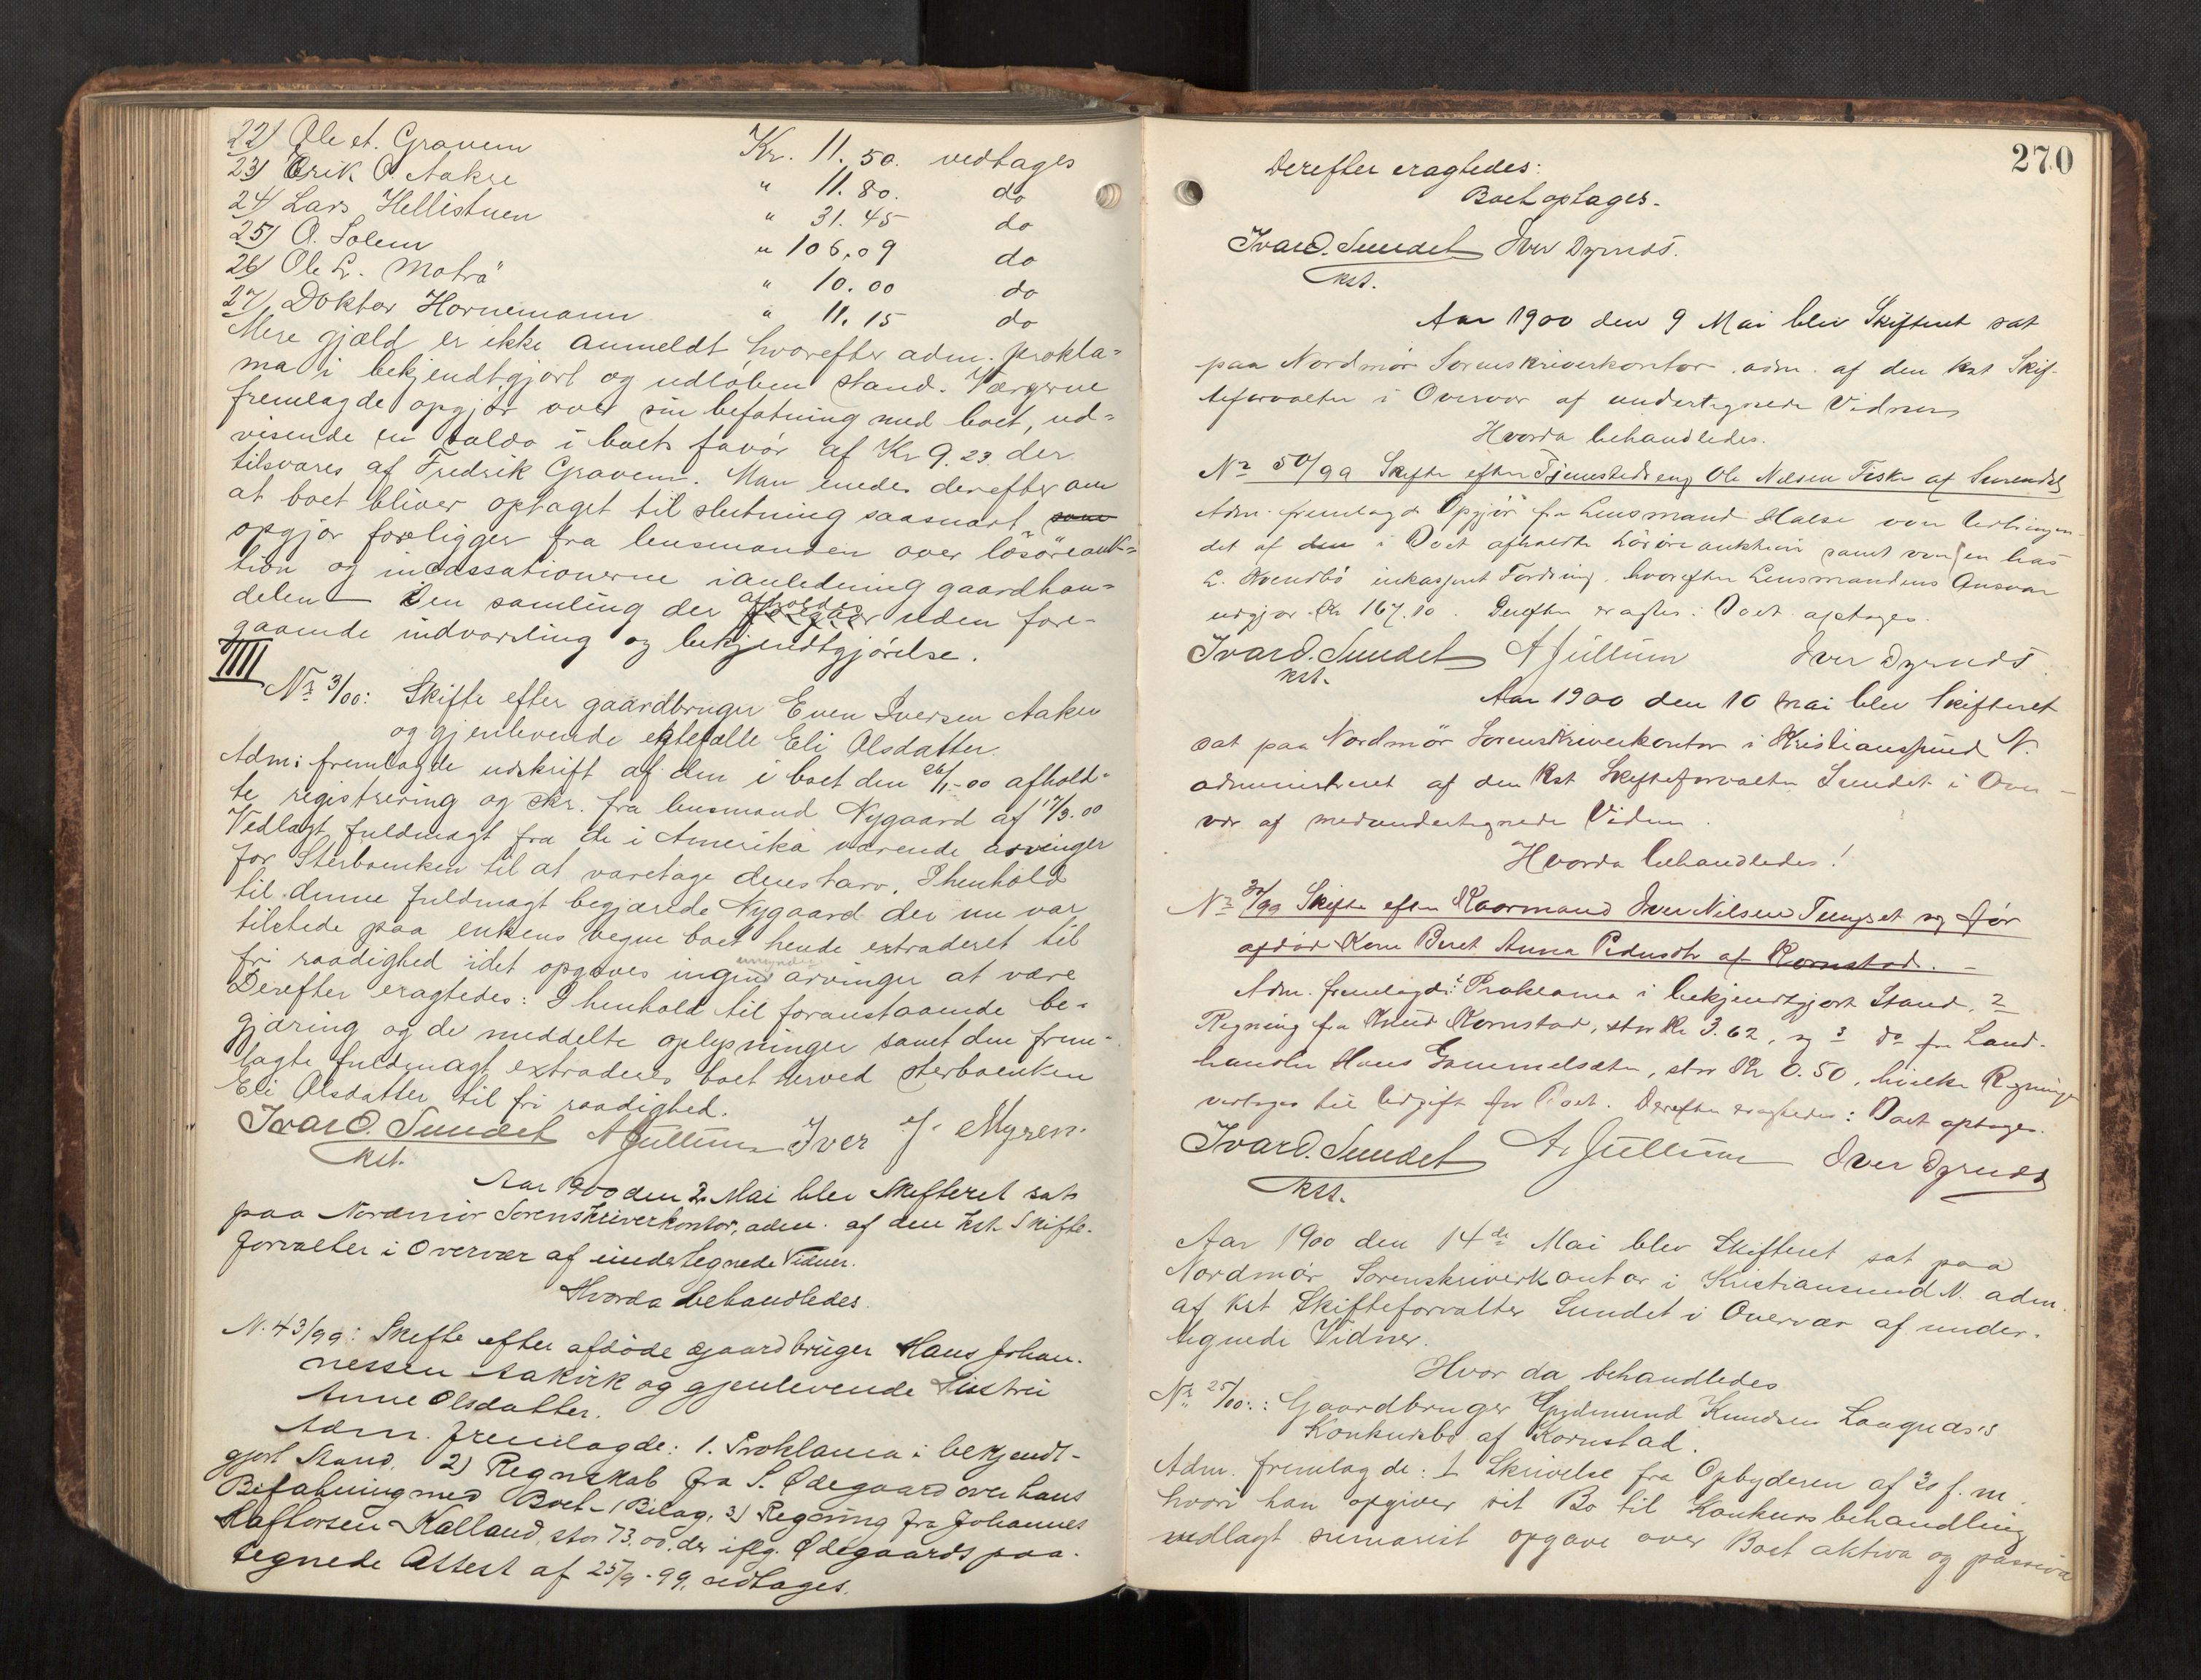 22) Ole et. Gravem Kr. 11.50. vedtages
23) Erik O. Aakre " 11.80. do
24) Lars Hellistuen " 31.45 do
25) O. Solem " 106,09 do
26) Ole L. Moträ " 10.00 do
27) Doktor Hornemann " 11.15 do
Mere gjæld er ikke anmeldt hvorefter adm. prokla-
ma i bekjendtgjort og udløben stand. Værgerne
fremlagde opgjør over sin befatning med boet, ud-
visende en saldo i boets favør af Kr 9.23. der
tilsvares af Fredrik Gravem. Man enedes derefter om
at boet bliver optaget til slutning saasnart som
opgjør foreligger fra lensmanden over løsøreauk-
tion og incassationerne i anledning gaardhan-
delen – Den samling der foregaar afholdes uden fore-
gaaende indvarsling og bekjendtgjørelse.
IIII
No 3/00: Skifte efter gaardbruger Even Iversen Aaken
og gjenlevende egtefælle Eli Olsdatter
Adm: fremlagde udskrift af den i boet den 26/1-00 afhold-
te registrering og skr. fra lensmand Nygaard af 17/3.00
Vedlagt fuldmagt fra de i Amerika værende arvinger
for Sterboenken til at varetage deres tarv. I henhold
til denne fuldmagt begjærede Nygaard der nu var
tilstede paa enkens vegne boet hende extraderet til
fri raadighed idet opgaves ingen umyndige arvinger at være
Derefter eragtedes: I henhold til foranstaaende be-
gjæring og de meddelte oplysninger samt den frem-
lagte fuldmagt extraderes boet herved sterboenken
Eli Olsdatter til fri raadighed.
Ivar O. Sundet A Jullum Iver J. Myren.
kst.
Aar 1900 den 2. Mai blev Skifteret sat
paa Nordmør Sorenskriverkontor, adm. af den kst. Skifte-
forvalter i Overvær af undertegnede Vidner.
Hvorda behandledes.
N. 43/99: Skifte efter afdøde gaardbruger Hans Johan-
nessen Aakvik og gjenlevende Hustru
Anne Olsdatter.
Adm. fremlagde: 1. Proklama i bekjendt-
gjort Stand. 2) Regnskab fra S. Ødegaard over hans
Befatning med Boet – 1 Bilag. 3) Regning fra Johannes
Haftorsen Kalland, stor 73.00. der iflg. Ødegaards paa-
tegnede Attest af 25/9-99, vedtages.
270
Derefter eragtedes:
Boet optages.
Ivar O. Sundet Iver Dyrnes.
kst.
Aar 1900 den 9 Mai blev Skifteret sat
paa Nordmør Sorenskriverkontor adm. af den kst Skif-
teforvalter i Overvær af undertegnede Vidner
Hvorda behandledes.
No 50/99 Skifte efter Tjenestedreng Ole Nilsen Fiske af Surendal
Adm. fremlagde Opgjør fra Lensmand Halse over Udbringen-
det af den i Boet afholdte Løsøreauktion samt over en hos
L. Kvendbø inkasseret Fordring, hvorefter Lensmandens Ansvar
udgjør Kr 167.10. Derefter eragtes: Boet optages.
Ivar O. Sundet A Jullum Iver Dyrnes
kst.
Aar 1900 den 10 Mai blev Skifteret
sat paa Nordmør Sorenskriverkontor i Kristianssund N.
administreret af den Kst Skifteforvalter Sundet i Over-
vær af medundertegnede Vidner.
Hvorda behandledes!
No 32/99 Skifte efter Kaarmand Iver Nilsen Tungset og før
afdød Kone Beret Anna Pedersdtr af Kornstad. –
Adm. fremlagde: 1 Proklama i bekjendtgjort Stand, 2
Regning fra Knud Kornstad, stor Kr 3.62, og 3 do fra Land-
handler Hans Gammelsæter, stor Kr 0.50, hvilke Regninger
vedtages til Udgift for Boet. Derefter eragtedes: Boet optages.
Ivar O. Sundet A. Jullum Iver Dyrnes
kst.
Aar 1900 den 14de Mai blev Skifteret sat paa
Nordmør Sorenskriverkontor i Kristiansund N. adm.
af kst Skifteforvalter Sundet i Overvær af under-
tegnede Vidner.
Hvor da behandledes
No 25/00: Gaardbruger Gudmund Knudsen Langnæs's
Konkursbo af Kornstad.
Adm. fremlagde: 1 Skrivelse fra Opbyderen af 30 f. m.
hvori han opgiver sit Bo til Konkursbehandling
vedlagt sumarisk opgave over Boet aktiva og passiva